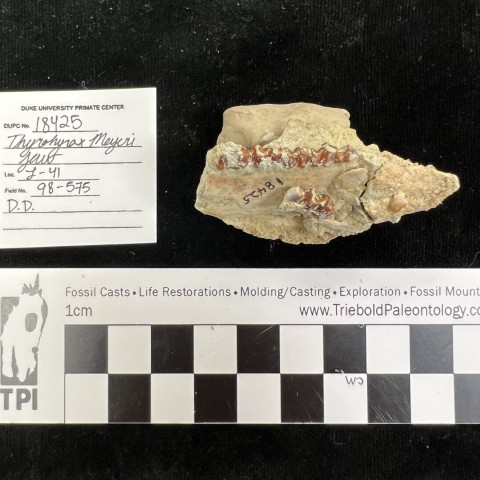 DUKE UNIVERSITY PRIMATE CENTER
DUPC No. 18425
Thyrohyrax Meyeri
Loc. L-41
Field No. 98-575
D.D.
18425
Fossil Casts • Life Restorations • Molding/Casting • Exploration • Fossil Mount
1cm
www.TrieboldPaleontology.co
CM
TPI